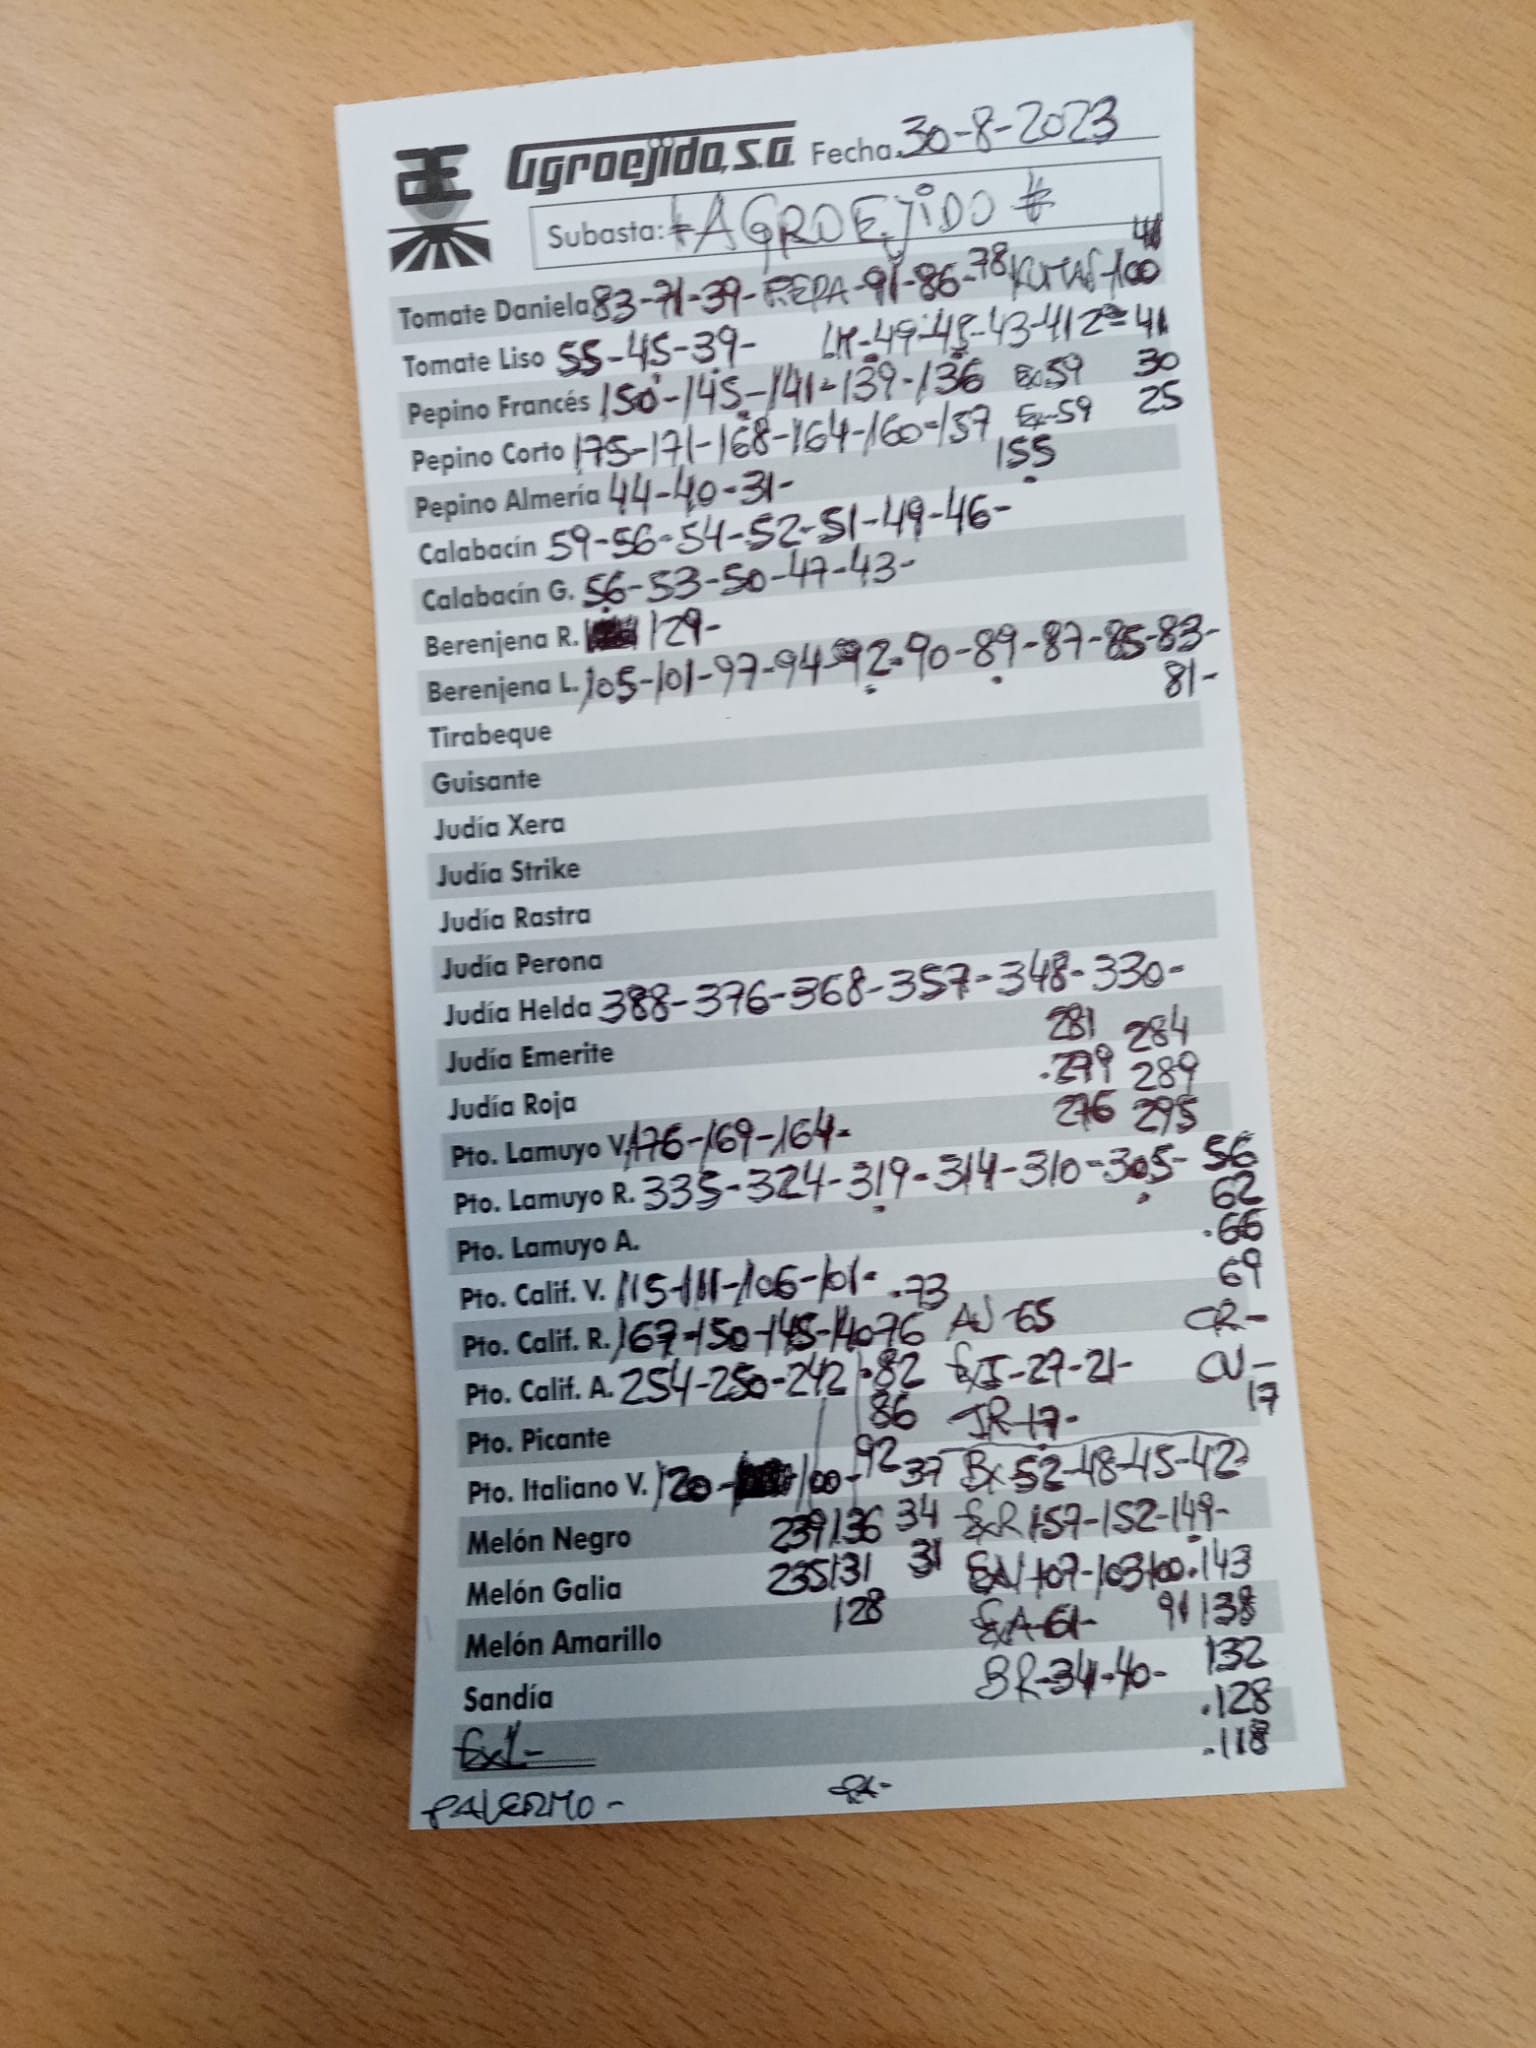 Agroejido, S.A. Fecha. 30-8-2023
Subasta: #AGROEJIDO#
Tomate Daniela 83-71-39- PERA-91-86-78 KUMAT-100
Tomate Liso 55-45-39- LM-49-45-43-41 2ª=41
Pepino Francés 150-145-141-139-136 Ex-59 30
Pepino Corto 175-171-168-164-160-157 Ex-59 25
155
Pepino Almería 44-40-31-
Calabacín 59-56-54-52-51-49-46-
Calabacín G. 56-53-50-47-43-
Berenjena R. 129-
Berenjena L. 105-101-97-94-92-90-89-87-85-83-
81-
Tirabeque
Guisante
Judía Xera
Judía Strike
Judía Rastra
Judía Perona
Judía Helda 388-376-368-357-348-330-
Judía Emerite 281 284
Judía Roja .279 289
Pto. Lamuyo V. 176-169-164- 276 295
Pto. Lamuyo R. 335-324-319-314-310-305- 56
62
Pto. Lamuyo A. .66
Pto. Calif. V. 115-111-106-101- .73 69
Pto. Calif. R. 167-150-145-140-76 AJ-65 CR-
Pto. Calif. A. 254-250-242 .82 ExI-27-21- CV-
Pto. Picante 86 JR-17- 17
Pto. Italiano V. 120- 100-92 37 Bx-52-48-45-42-
Melón Negro 239 136 34 ExR 157-152-149-
Melón Galia 235 131 31 ExV 107-103-100 .143
Melón Amarillo 128 ExA-61- 91 138
Sandía BR-34-40- 132
ExL- .128
.118
PALERMO-